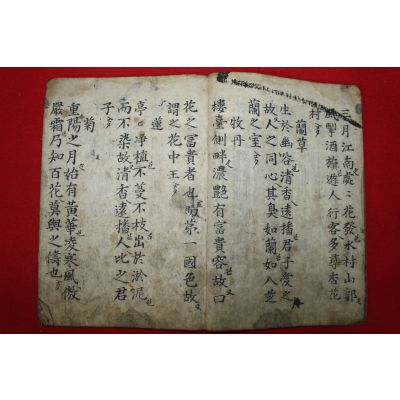 三月江南處〻花發水村山郭
酒旗遊人行客多尋杏花
村
蘭草
生於幽谷清香遠播君子愛之
故人之同心其臭如蘭如入芝
蘭之室
牧丹
樓臺側畔濃艶有富貴容故曰
花之富貴者也一國色故
謂之花中王
蓮
亭〻凈植不蔓不枝出於淤泥
而不染故清香遠播人比之君
子
菊
重陽之月始有黃華凌寒風傲
嚴霜乃知百花莫與之儔也